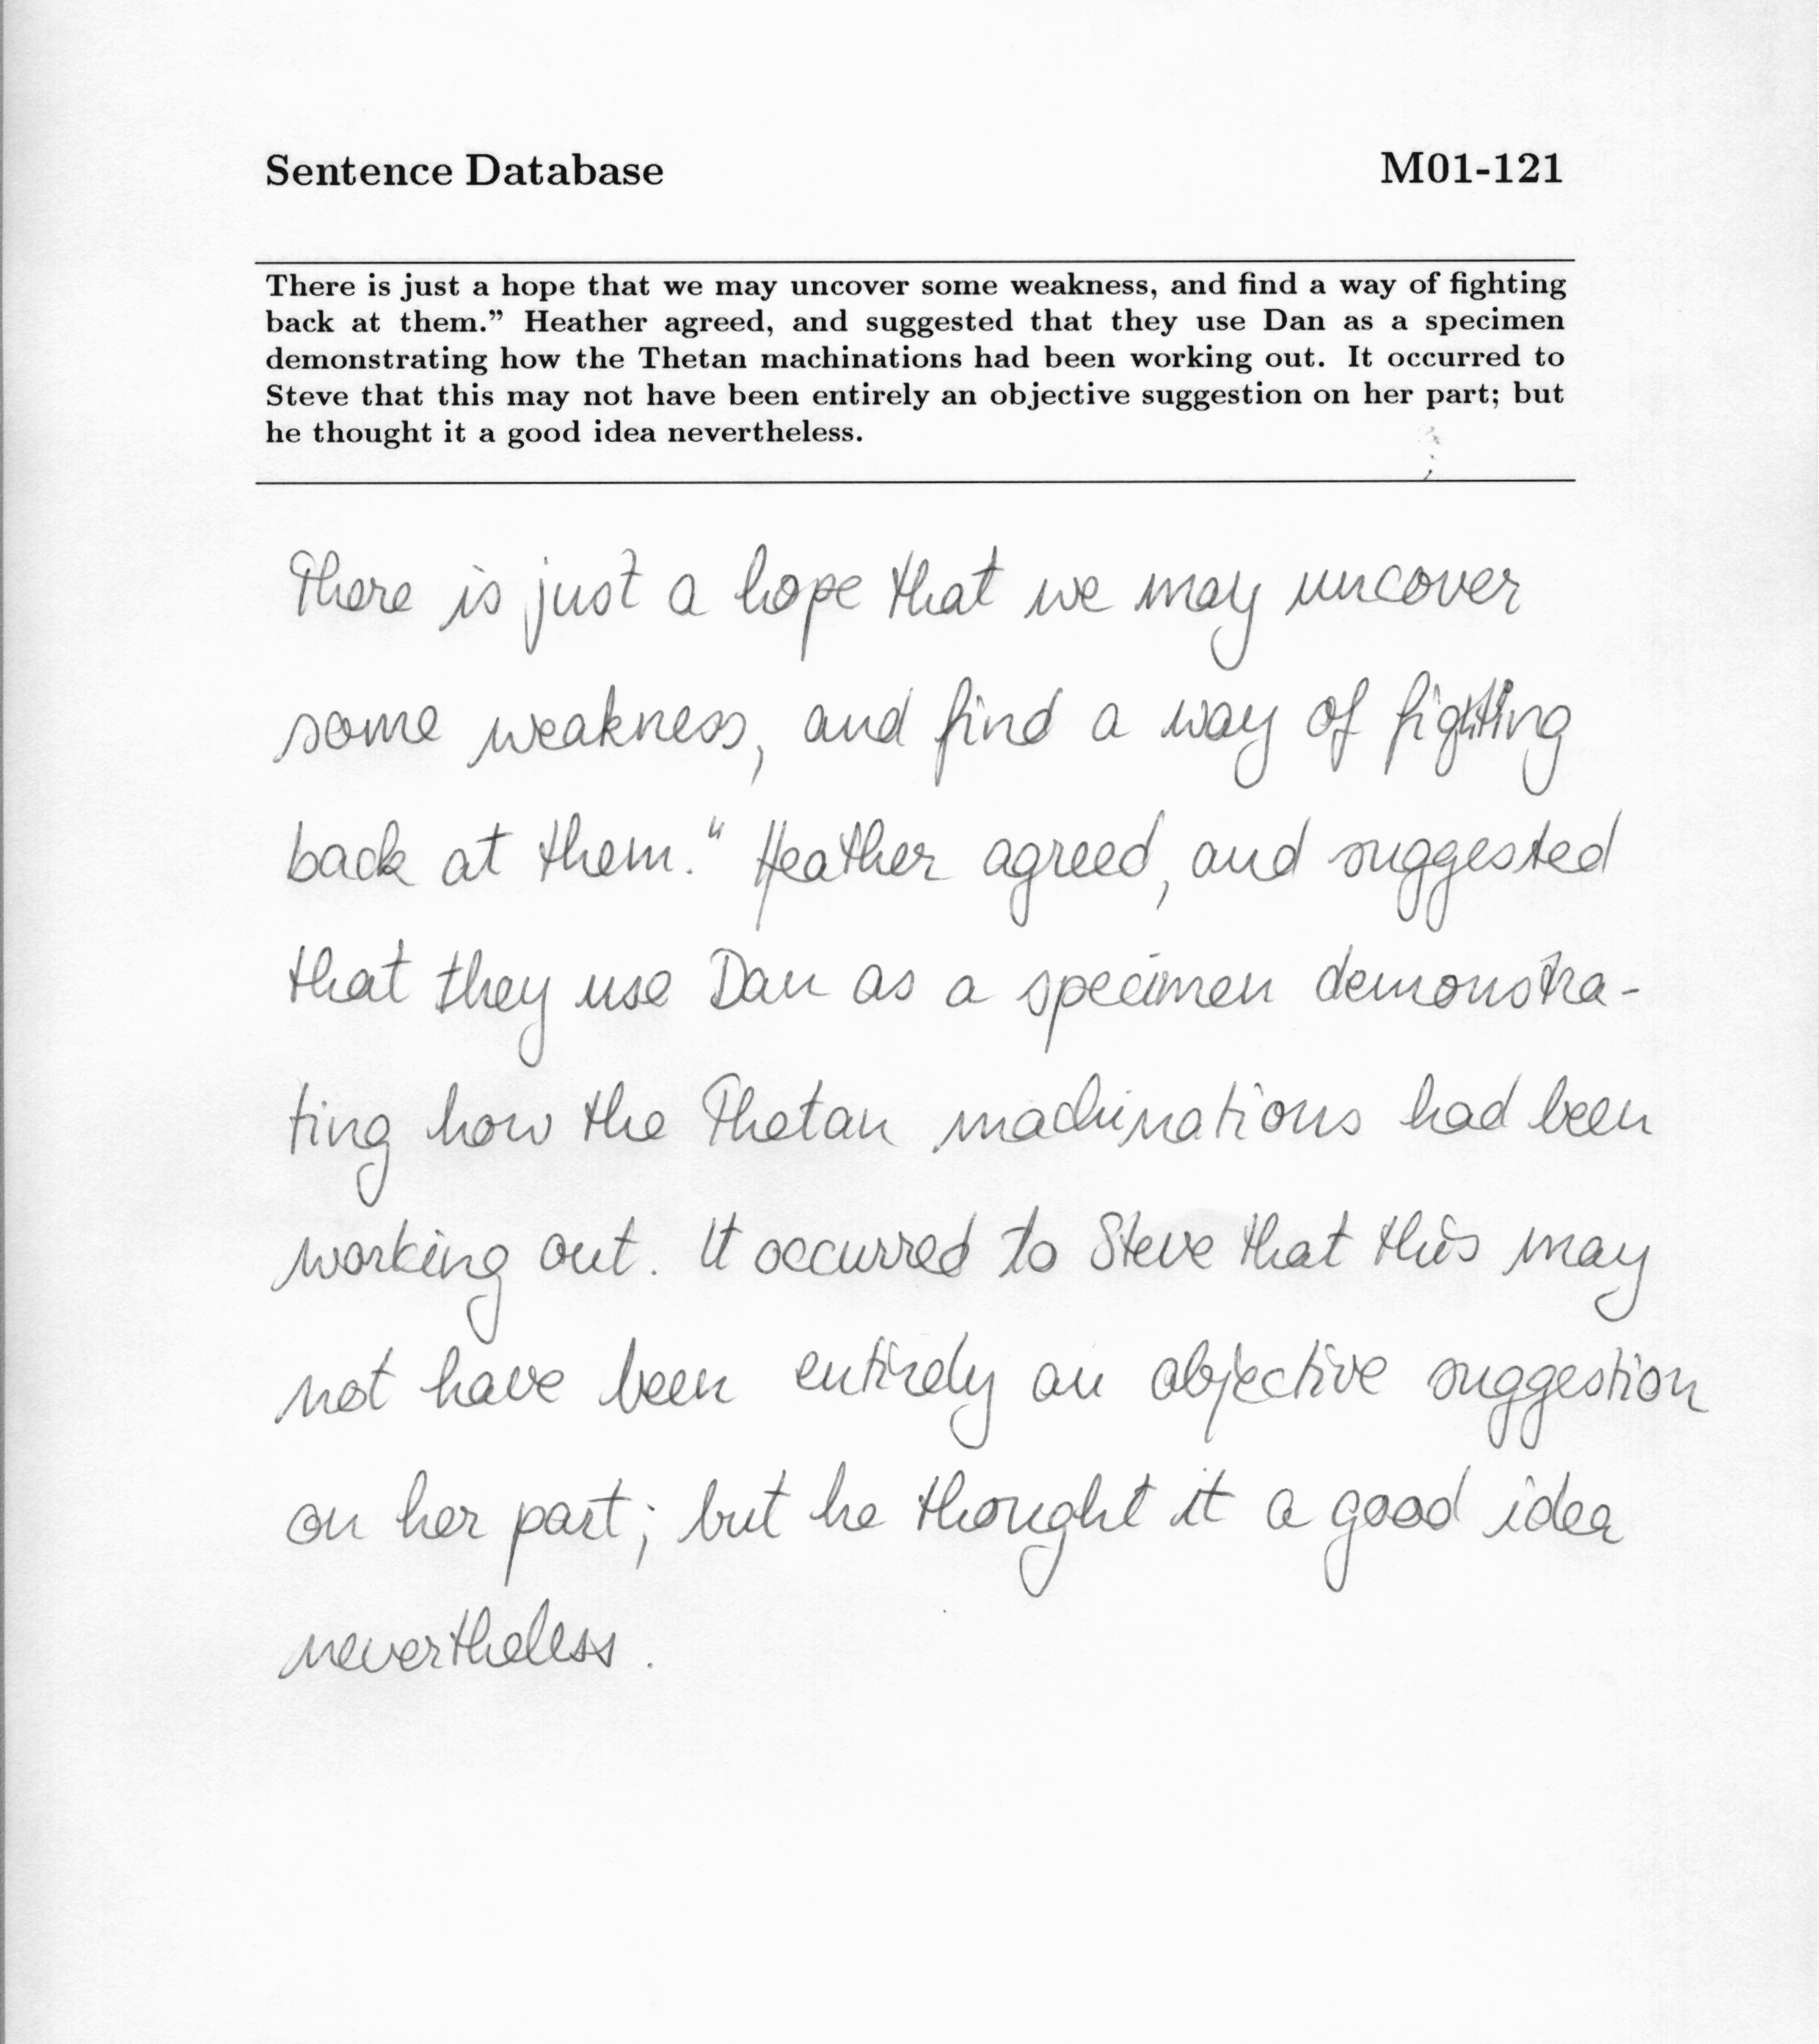 Sentence Database M01-121
There is just a hope that we may uncover some weakness, and find a way of fighting
back at them.” Heather agreed, and suggested that they use Dan as a specimen
demonstrating how the Thetan machinations had been working out. It occurred to
Steve that this may not have been entirely an objective suggestion on her part; but
he thought it a good idea nevertheless.
There is just a hope that we may uncover
some weakness, and find a way of fighting
back at them.“ Heather agreed, and suggested
that they use Dan as a specimen demonstra-
ting how the Thetan machinations had been
working out. It occurred to Steve that this may
not have been entirely an objective suggestion
on her part; but he thought it a good idea
nevertheless.